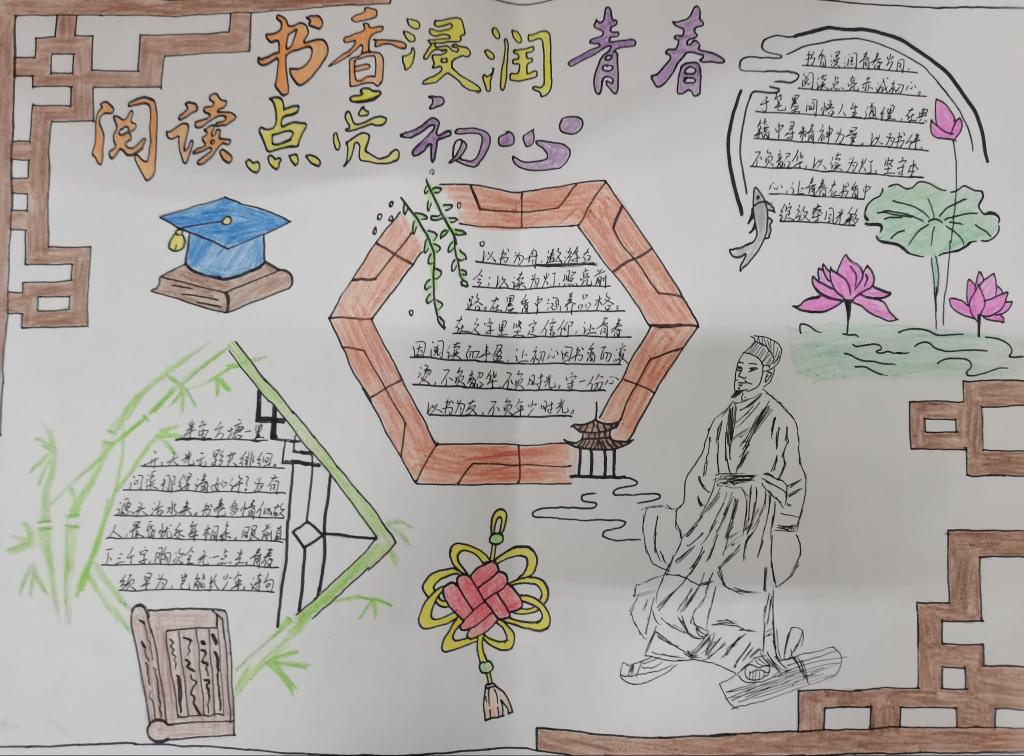 书香浸润青春
阅读点亮初心
书香浸润青春岁月,
阅读点亮赤诚初心。
于笔墨间悟人生道理,在典
籍中寻精神力量,以为书伴,
不负韶华,以读为灯,坚守本
心,让青春在书香中
绽放夺目光彩
以书为舟,遨游古
今;以读为灯,照亮前
路。在墨香中涵养品格。
在文字里坚定信仰,让青春
因阅读而丰盈,让初心因书香而滚
烫,不负韶华不负时光,守一份心
以书为友,不负年少时光。
半亩方塘一鉴
开,天光云影共徘徊。
问渠那得清如许?为有
源头活水来。书卷多情似故
人,晨昏忧乐每相亲。眼前直
下三千字,胸次全无一点尘。青春
须早为,岂能长少年,诗句